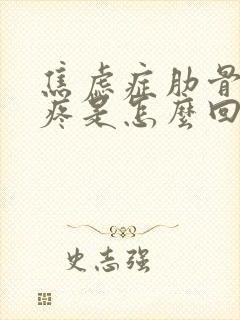 焦虑症肋骨
疼是怎麼回
史志强